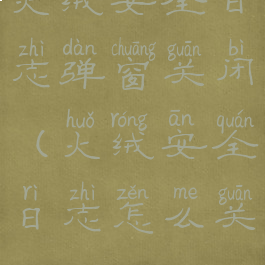 火绒安全日
zhì dàn chuāng guān bì
志弹窗关闭
huǒ róng ān quán
（火绒安全
rì zhì zěn me guān
日志怎么关